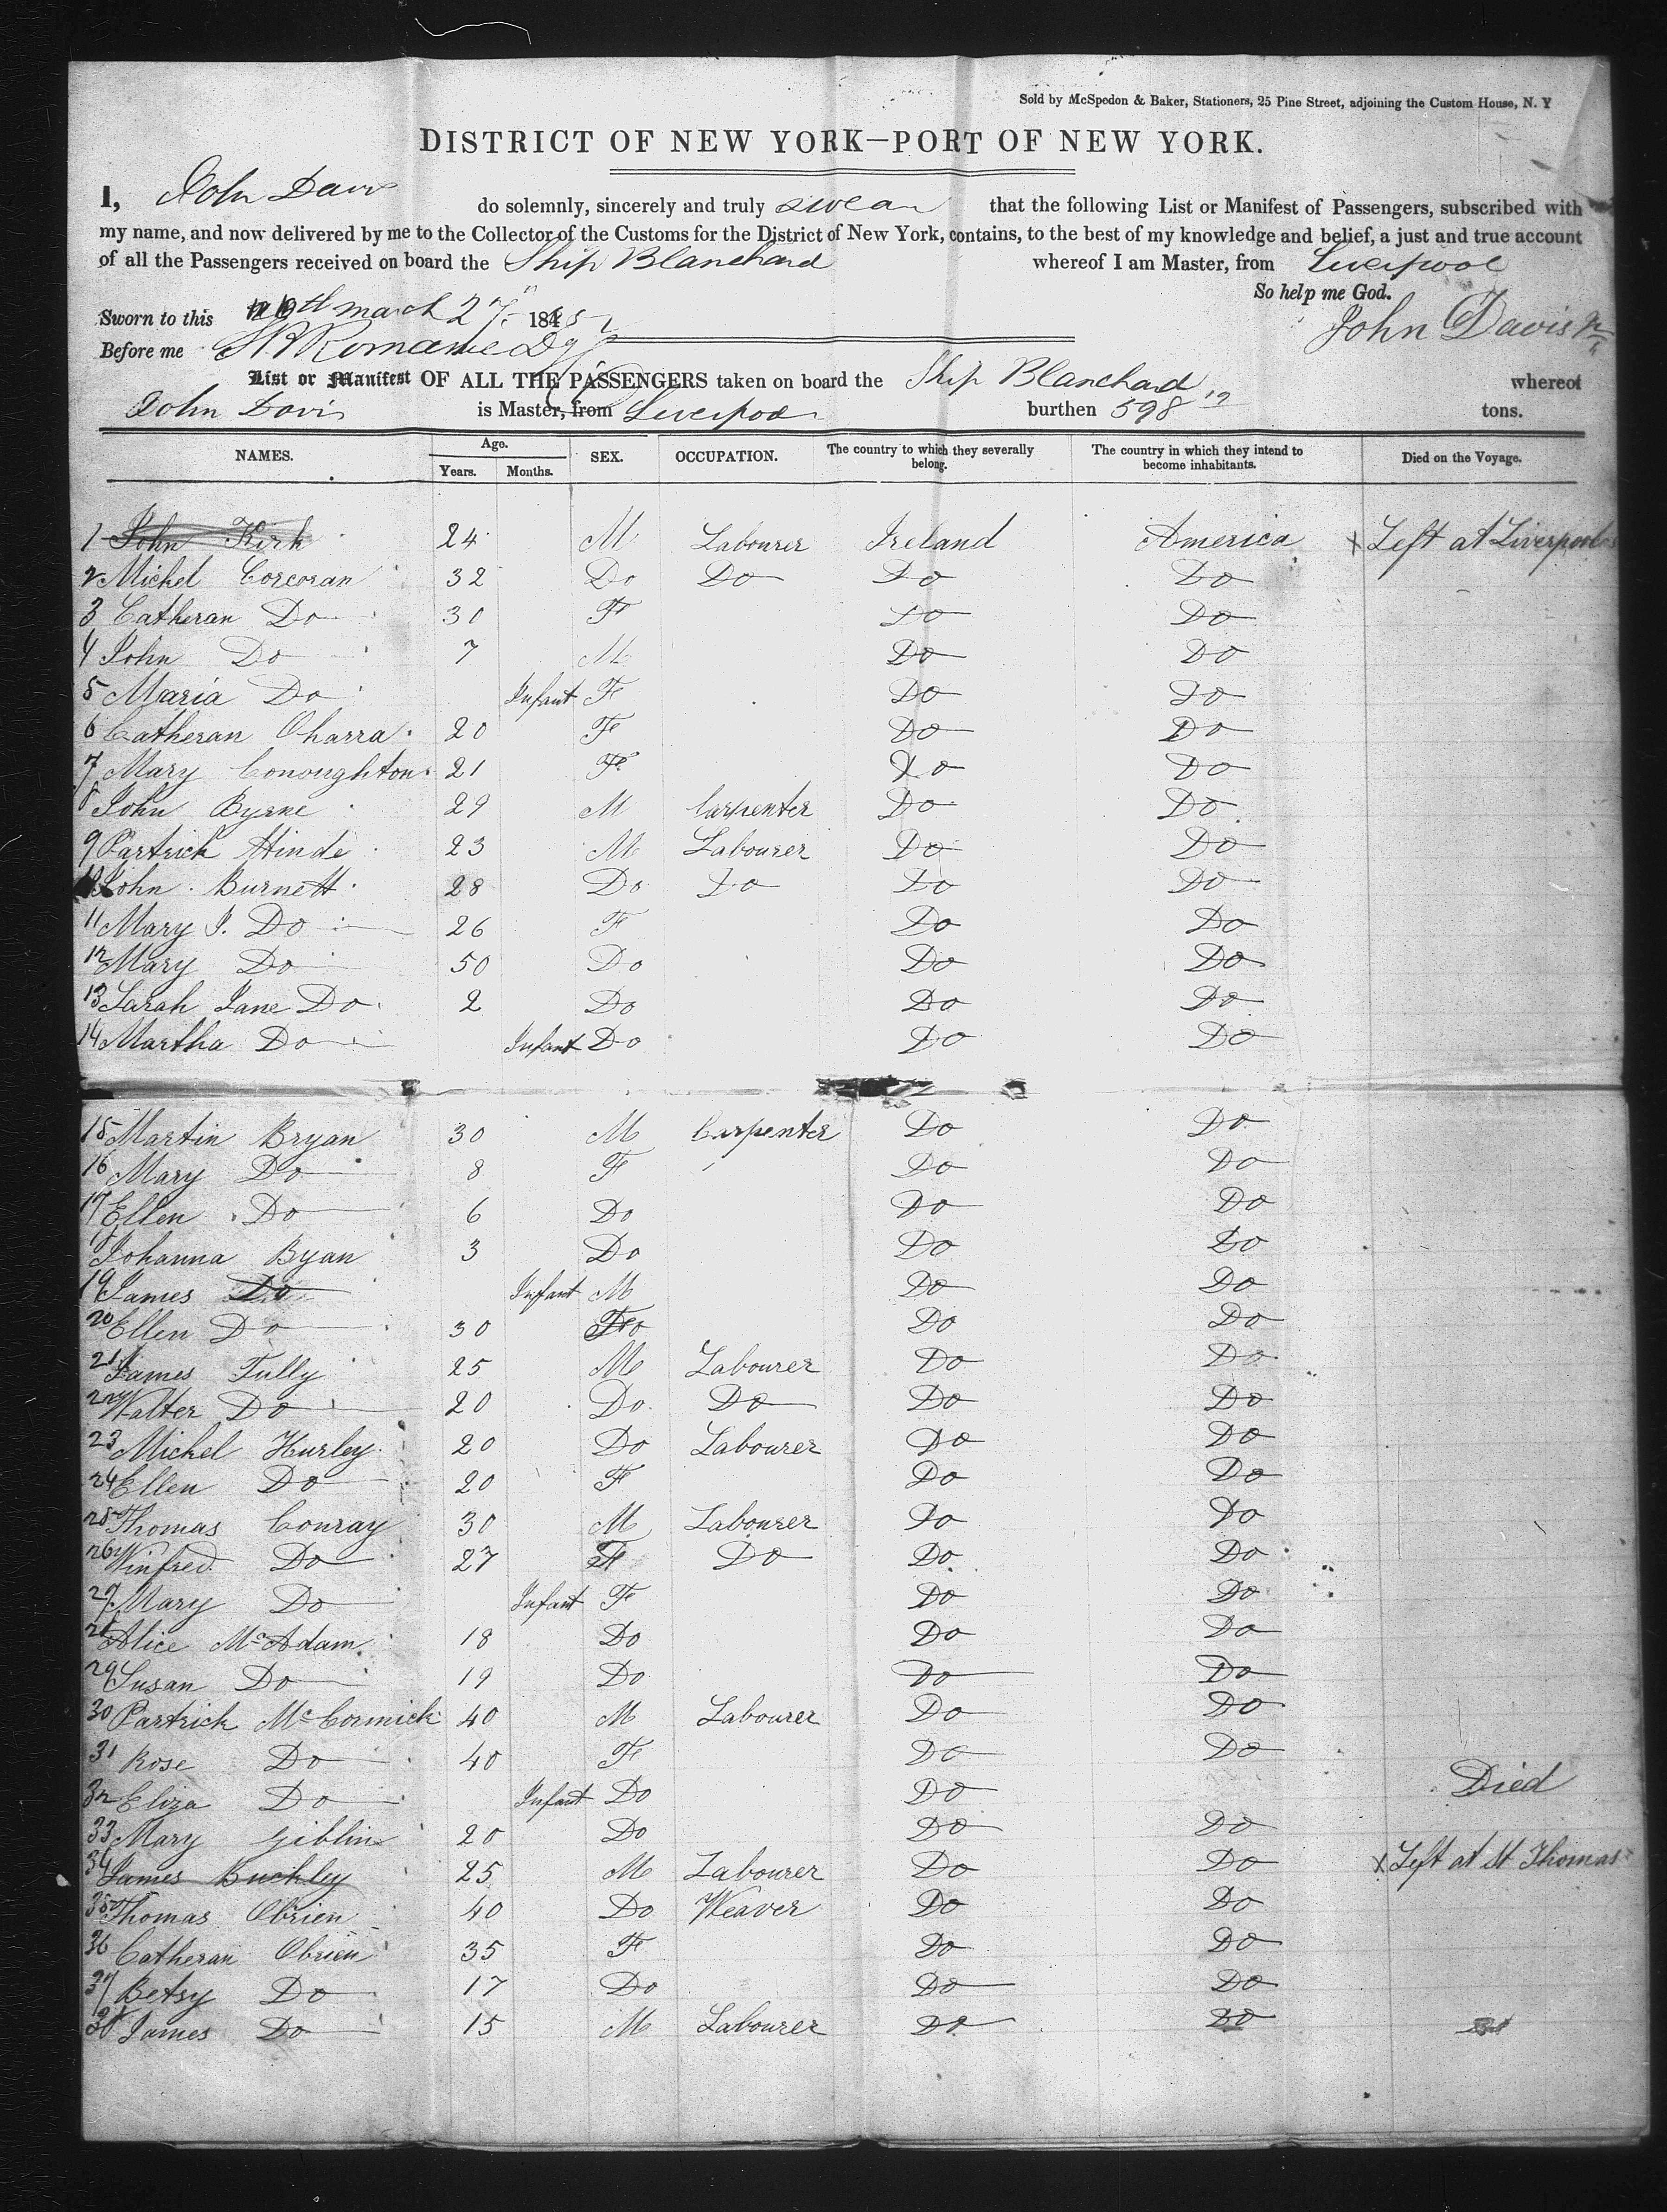 Sold by McSpedon & Baker, Stationers, 25 Pine Street, adjoining the Custom House, N. Y
DISTRICT OF NEW YORK—PORT OF NEW YORK.
I, John Davis do solemnly, sincerely and truly swear that the following List or Manifest of Passengers, subscribed with
my name, and now delivered by me to the Collector of the Customs for the District of New York, contains, to the best of my knowledge and belief, a just and true account
of all the Passengers received on board the Ship Blanchard whereof I am Master, from Liverpool
So help me God.
Sworn to this march 27 184 John Davis
Before me
List or Manifest OF ALL THE PASSENGERS taken on board the Ship Blanchard whereof
John Davis is Master, from Liverpool burthen 598 tons.
NAMES. Age. Years. Months. SEX. OCCUPATION. The country to which they severally belong. The country in which they intend to become inhabitants. Died on the Voyage.
1 John Kirk 24 M Labourer Ireland America X Left at Liverpool
2 Michel Corcoran 32 Do Do Do Do
3 Catheran Do 30 F Do Do
4 John Do 7 M Do Do
5 Maria Do Infant F Do Do
6 Catheran Oharra 20 F Do Do
7 Mary Conoughton 21 F Do Do
8 John Byrne 29 M Carpenter Do Do
9 Partrick Hinde 23 M Labourer Do Do
10 John Burnett 28 Do Do Do Do
11 Mary J. Do 26 F Do Do
12 Mary Do 50 Do Do Do
13 Sarah Jane Do 2 Do Do Do
14 Martha Do Infant Do Do Do
15 Martin Bryan 30 M Carpenter Do Do
16 Mary Do 8 F Do Do
17 Ellen Do 6 Do Do Do
18 Johanna Byan 3 Do Do Do
19 James Do Infant M Do Do
20 Ellen Do 30 F Do Do
21 James Tully 25 M Labourer Do Do
22 Walter Do 20 Do Do Do Do
23 Michel Hurley 20 Do Labourer Do Do
24 Ellen Do 20 F Do Do
25 Thomas Conray 30 M Labourer Do Do
26 Winfred Do 27 F Do Do Do
27 Mary Do Infant F Do Do
28 Alice McAdam 18 Do Do Do
29 Susan Do 19 Do Do Do
30 Partrick McCormick 40 M Labourer Do Do
31 Rose Do 40 F Do Do
32 Eliza Do Infant Do Do Died
33 Mary Giblin 20 Do Do Do
34 James Buckley 25 M Labourer Do Do X Left at St Thomas
35 Thomas Obrien 40 Do Weaver Do Do
36 Catheran Obrien 35 F Do Do
37 Betsy Do 17 Do Do Do
38 James Do 15 M Labourer Do Do